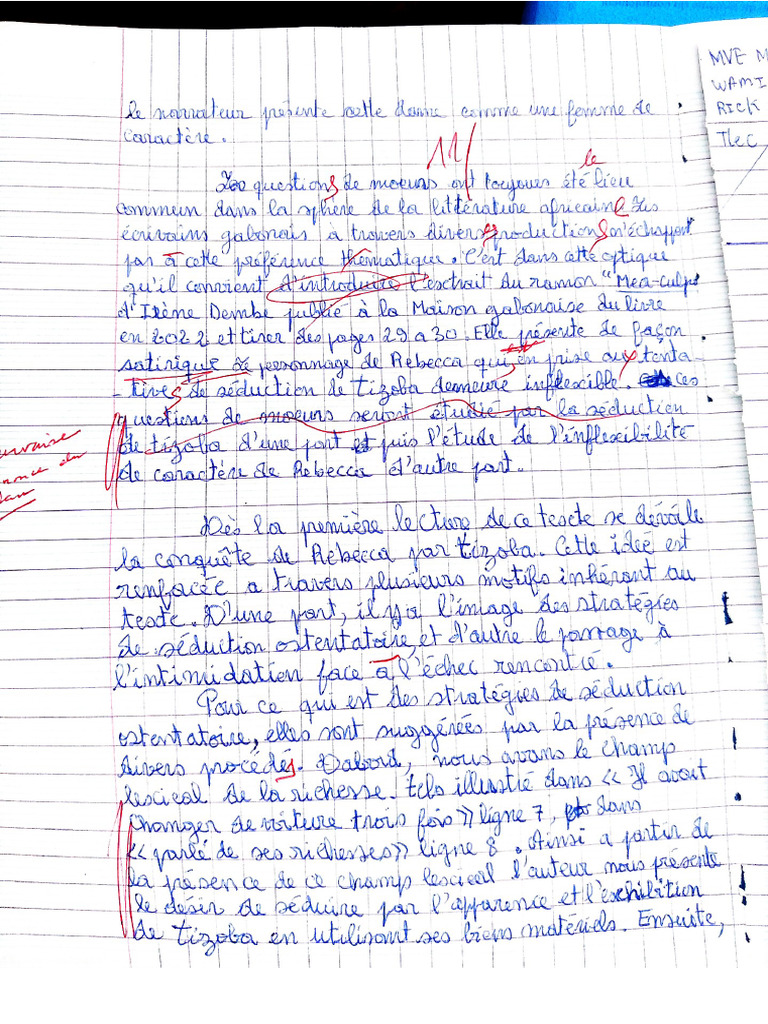 le narrateur présente cette dame comme une femme de
caractère.
11/
le
questions de moeurs ont toujours été lieu
commun dans la sphère de la littérature africaine Les
écrivains gabonais à travers diverses productions n'échappent
pas à cette préférence thématique. C'est dans cette optique
qu'il convient d'introduire l'extrait du roman "Mea-culpa
d'Irène Dembe publié à la Maison gabonaise du livre
en 2022 et tiner des pages 29 a 30. Elle présente de façon
satirique le personnage de Rebecca qui, en prise aux tenta-
-tives de séduction de Tizoba demeure inflexible. ces
questions de moeurs seront étudié par la séduction
de tizoba d'une part et puis l'étude de l'inflexibilité
de caractère de Rebecca d'autre part.
Dès la première lecture de ce texte se dévoile
la conquête de Rebecca par tizoba. Cette idée est
renfocée a travers plusieurs motifs inhérent au
texte. D'une part, il y a l'image des stratégies
de séduction ostentatoire, et d'autre le passage à
l'intimidation face à l'échec rencontré.
Pour ce qui est des stratégies de séduction
ostentatoire, elles sont suggérées par la présence de
divers procédés. D'abord, nous avons le champ
lescical de la richesse. tels illustré dans << Il avait
changer de voiture trois fois >> ligne 7, dans
<< parlé de ses richesses >> ligne 8. Ainsi a partir de
la présence de ce champ lescical l'auteur nous présente
le désir de séduire par l'apparence et l'exhibition
de tizoba en utilisant ses biens matériels. Ensuite,
MVE M
WAMI
RICK
Tlec